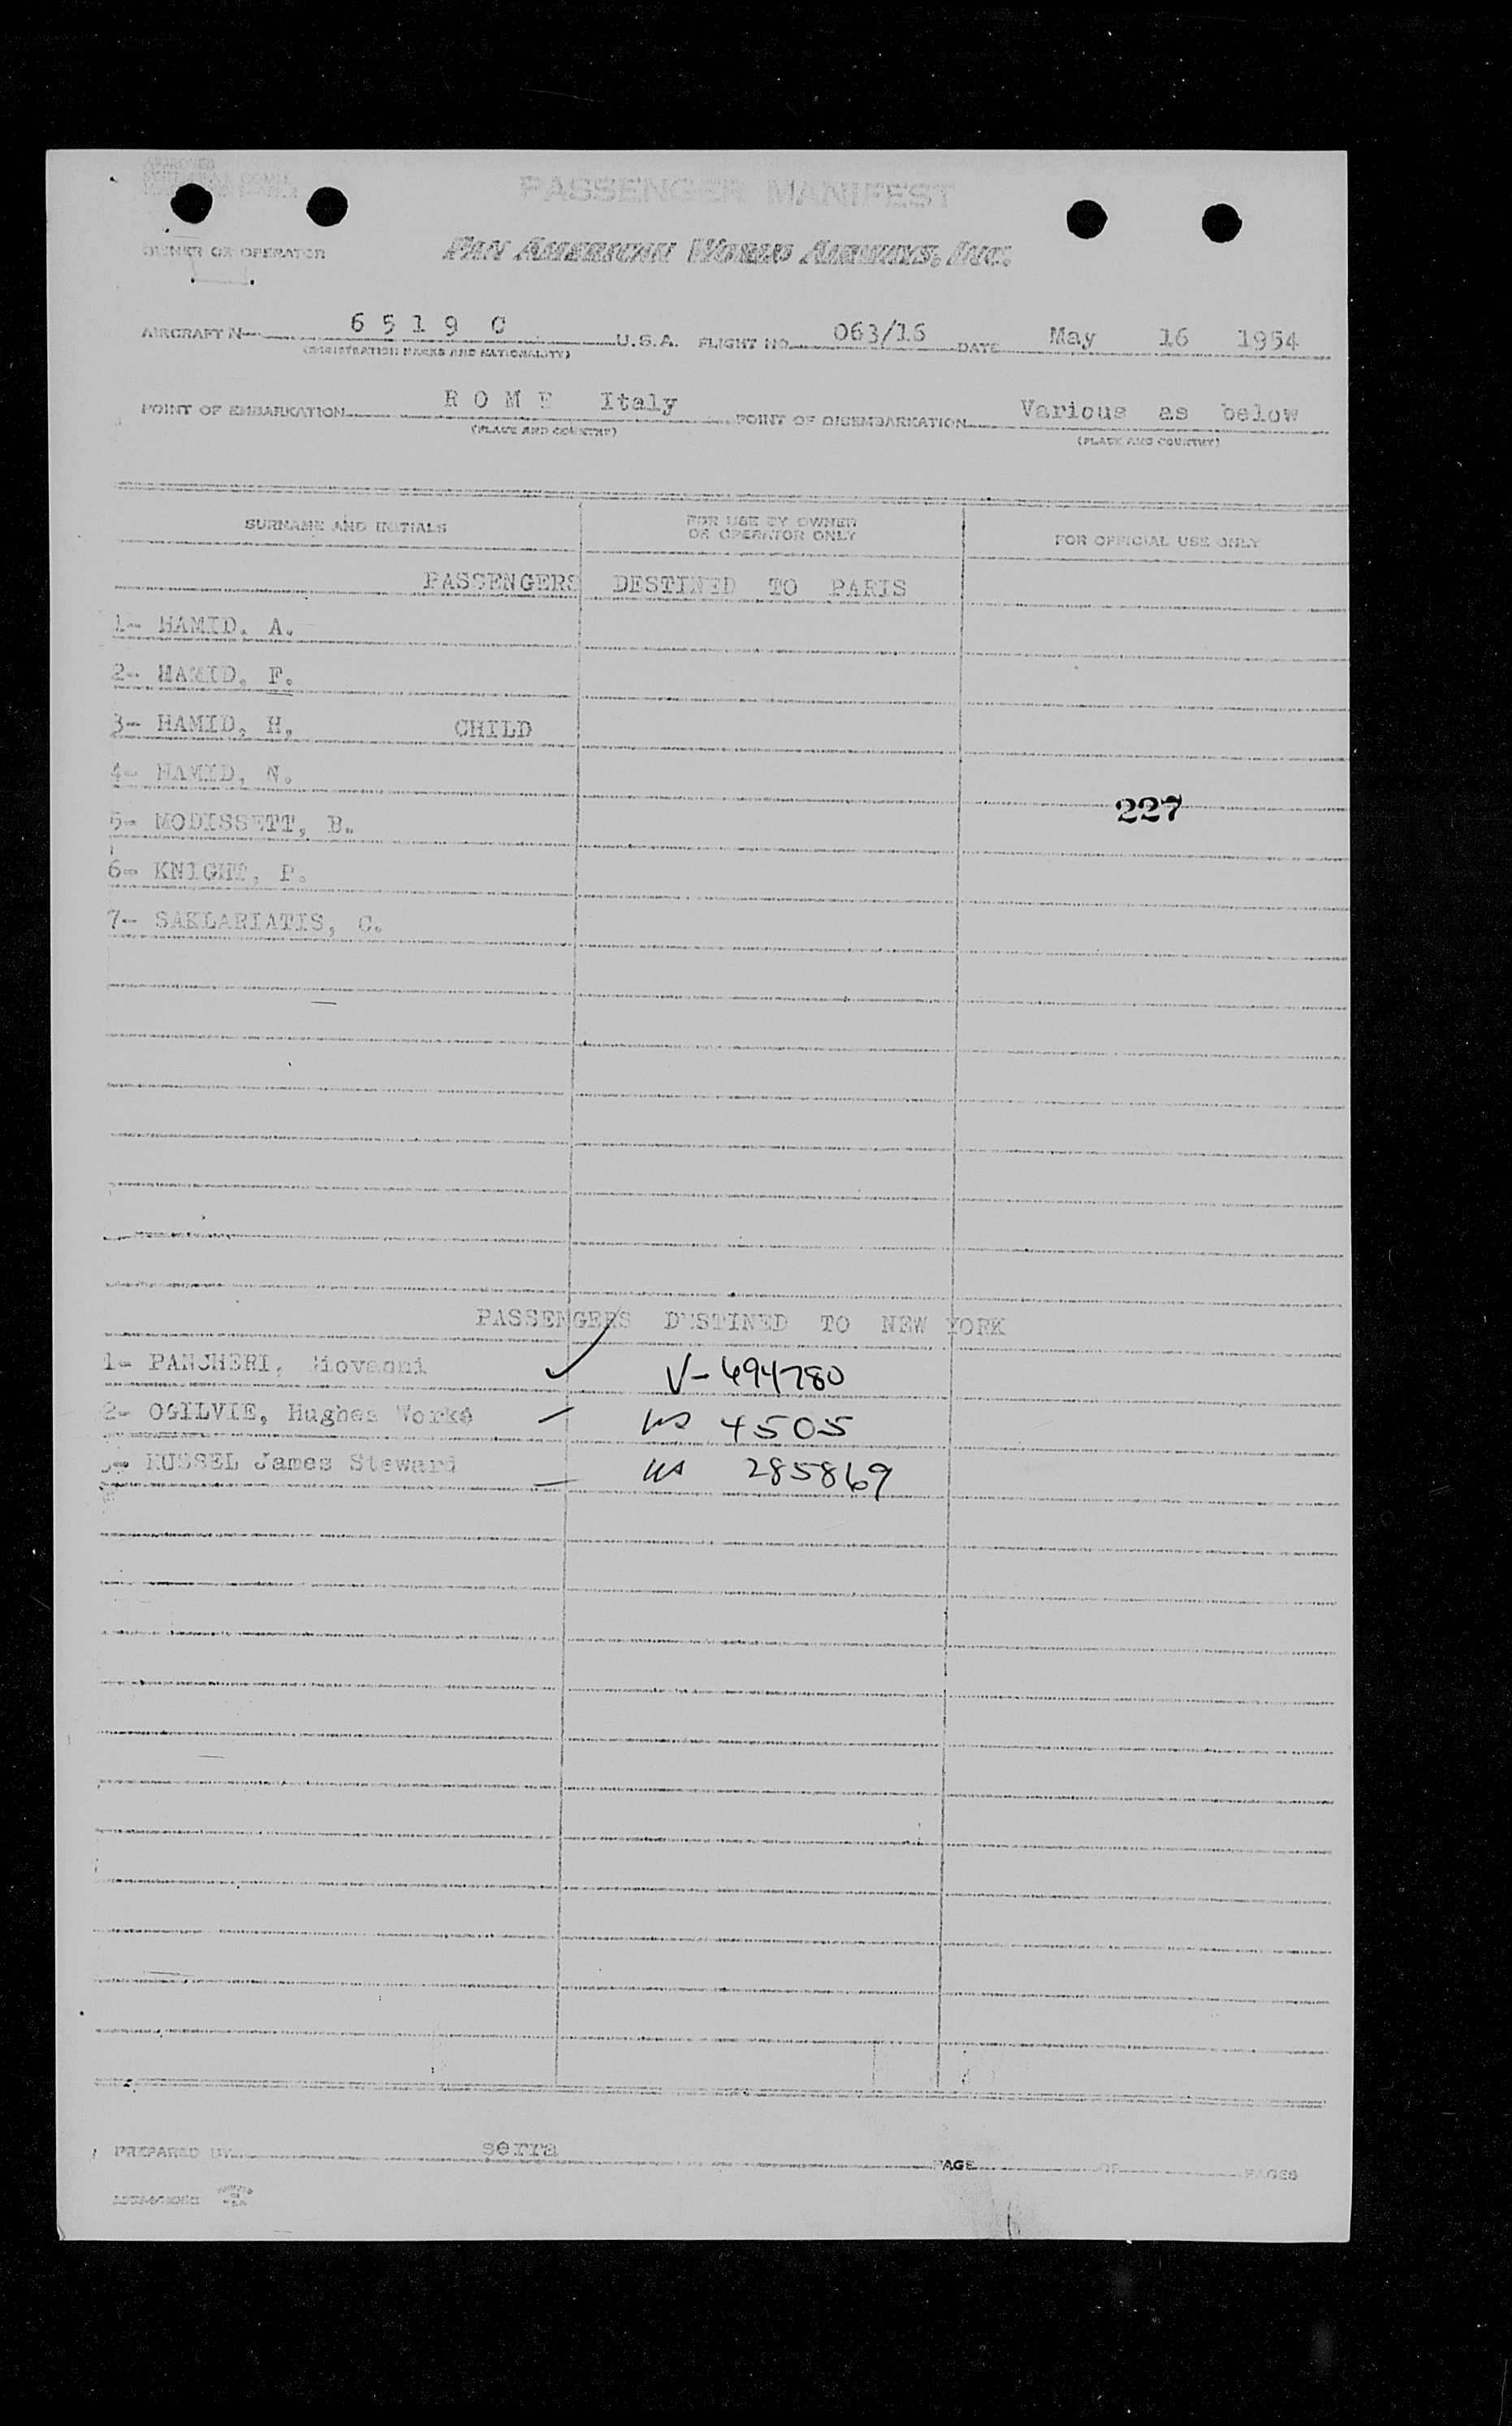 APPROVED
PASSENGER MANIFEST
OWNER OR OPERATOR
PAN AMERICAN WORLD AIRWAYS, INC.
AIRCRAFT N 6 5 1 9 C U.S.A. FLIGHT NO. 063/16 DATE May 16 1954
(REGISTRATION MARKS AND NATIONALITY)
POINT OF EMBARKATION R O M E Italy POINT OF DISEMBARKATION Various as below
(PLACE AND COUNTRY) (PLACE AND COUNTRY)
SURNAME AND INITIALS FOR USE BY OWNER OR OPERATOR ONLY FOR OFFICIAL USE ONLY
PASSENGERS DESTINED TO PARIS
1- HAMID, A.
2- HAMID, F.
3- HAMID, H, CHILD
4- HAMID, N.
227
5- MODISSETT, B.
6- KNIGHT, P.
7- SAKLARIATIS, C.
PASSENGERS DESTINED TO NEW YORK
1- PANCHERI, Giovanni V-494780
2- OGILVIE, Hughes Worke US 4505
3- RUSSEL James Steward US 285869
PREPARED BY serra PAGE OF PAGES